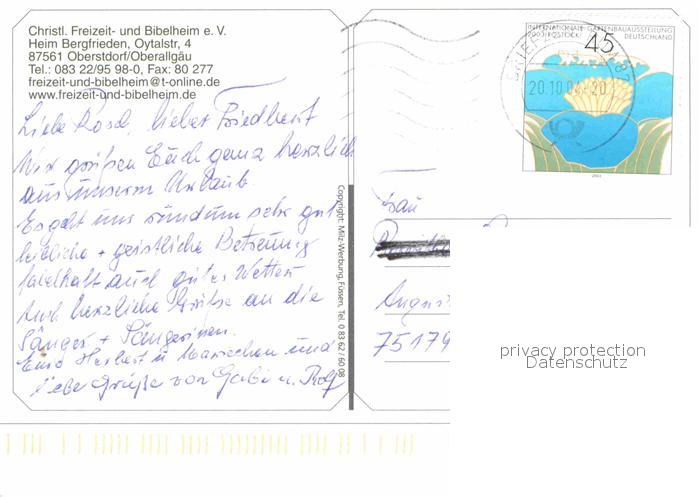 Christl. Freizeit- und Bibelheim e. V.
Heim Bergfrieden, Oytalstr, 4
87561 Oberstdorf/Oberallgäu
Tel.: 083 22/95 98-0, Fax: 80 277
freizeit-und-bibelheim@t-online.de
www.freizeit-und-bibelheim.de
Liebe lieber Friedhert
Wir grüßen Euch ganz herzlich
aus unserem Urlaub.
Es geht uns rundum sehr gut
leibliche + geistliche Betreuung
fabelhaft auch gutes Wetter
Auch herzliche Grüße an die
Sänger + Sängerinnen.
Eure Herbert u. Mariechen und
liebe Grüße von Gabi u. Rolf
Copyright: Milz-Werbung, Füssen, Tel. 0 83 62 / 60 08
INTERNATIONALE GARTENBAUAUSSTELLUNG
2003 ROSTOCK DEUTSCHLAND
45
BRIEF
20.10.04-20
2003
Frau
75179
privacy protection
Datenschutz